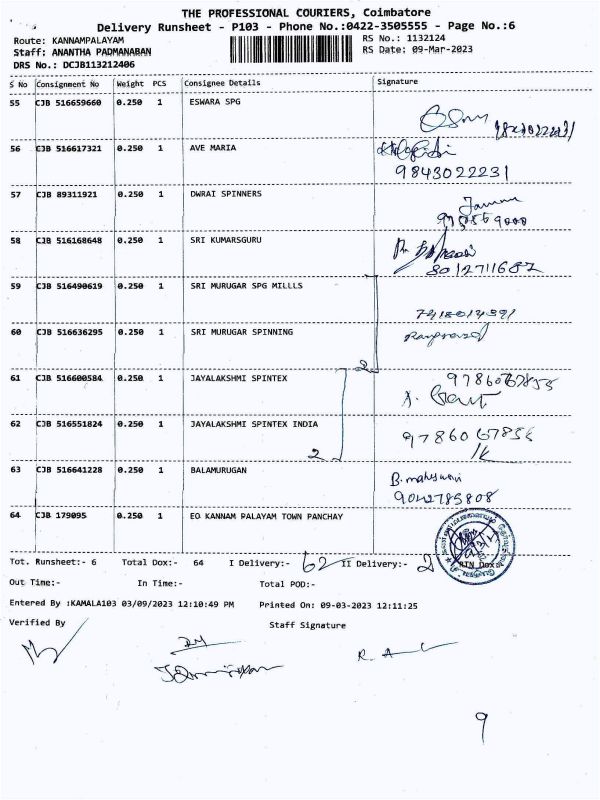 THE PROFESSIONAL COURIERS, Coimbatore
Delivery Runsheet - P103 - Phone No.:0422-3505555 - Page No.:6
Route: KANNAMPALAYAM RS No.: 1132124
Staff: ANANTHA PADMANABAN RS Date: 09-Mar-2023
DRS No.: DCJB113212406
S No Consignment No Weight PCS Consignee Details Signature
55 CJB 516659660 0.250 1 ESWARA SPG
56 CJB 516617321 0.250 1 AVE MARIA
9843022231
57 CJB 89311921 0.250 1 DWRAI SPINNERS
58 CJB 516168648 0.250 1 SRI KUMARSGURU
8012711687
59 CJB 516490619 0.250 1 SRI MURUGAR SPG MILLLS
60 CJB 516636295 0.250 1 SRI MURUGAR SPINNING
2
61 CJB 516600584 0.250 1 JAYALAKSHMI SPINTEX
62 CJB 516551824 0.250 1 JAYALAKSHMI SPINTEX INDIA
2
63 CJB 516641228 0.250 1 BALAMURUGAN
64 CJB 179095 0.250 1 EO KANNAM PALAYAM TOWN PANCHAY
Tot. Runsheet:- 6 Total Dox:- 64 I Delivery:- 62 II Delivery:- 2 RTN Dox:
Out Time:- In Time:- Total POD:-
Entered By :KAMALA103 03/09/2023 12:10:49 PM Printed On: 09-03-2023 12:11:25
Verified By Staff Signature
9